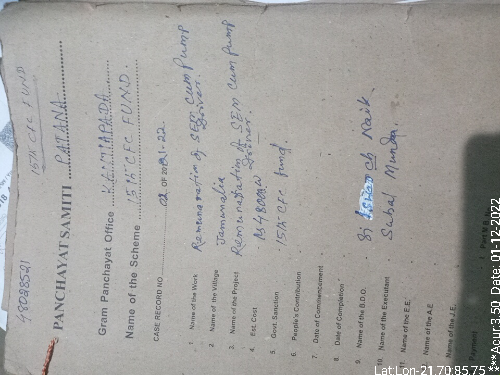 48028521
15th CFC FUND
PANCHAYAT SAMITI PATANA
Gram Panchayat Office
Name of the Scheme 15th CFC FUND.
CASE RECORD NO 02 OF 2021-22
1 Name of the Work Remuneration of SEM Cum Pump Driver.
2. Name of the Village Jamunalia
3. Name of the Project Remuneration of SEM Cum Pump Driver.
4. Est. Cost
5. Govt. Sanction 15th CFC fund.
6. People's Contribution
7. Date of Commencement
8. Date of Completion
9. Name of the B.D.O. ch Naik.
10. Name of the Executant Subal Munda.
11. Name of the E.E.
Name of the A.E
Name of the J.E.
Payment
Part M.B. No.
Lat:Lon-21.70:85.75
***Acur:3.5© Date: 01-12-2022